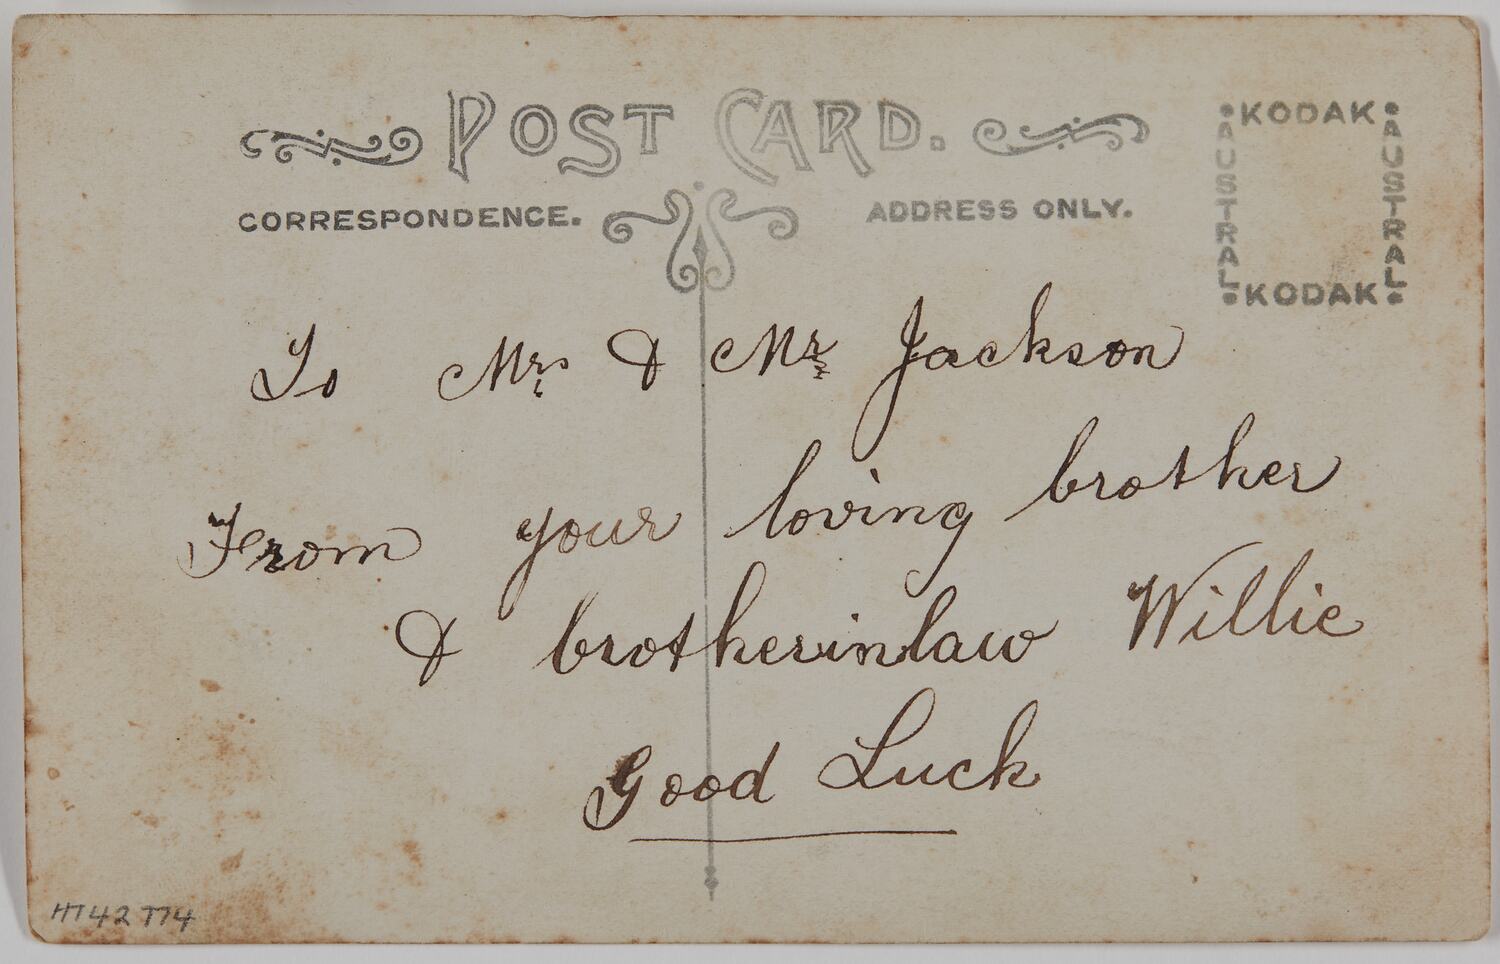 POST CARD.
CORRESPONDENCE.
ADDRESS ONLY.
KODAK
AUSTRAL
AUSTRAL
KODAK
To Mrs & Mr Jackson
From your loving brother
& brotherinlaw Willie
Good Luck